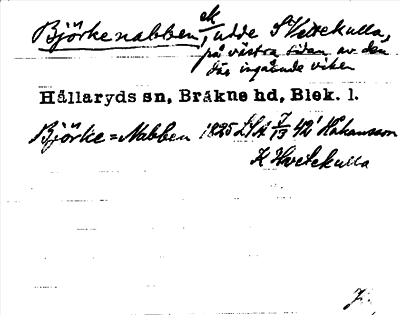 Björkenabben, ek, udde S Hvetekulla,
på västra sidan av den
där ingående viken
Hällaryds sn, Bräkne hd, Blek. l.
Björke=Nabben 1825 LSA 7/13 42' Håkansson
K Hvetekulla